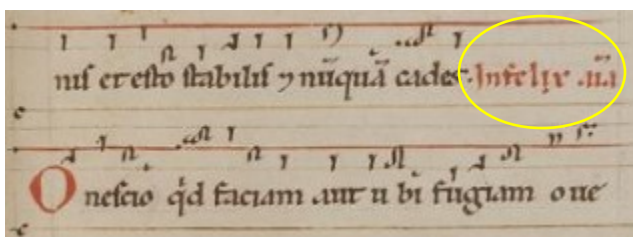 nis et esto stabilis ⁊ nūquā cades. Infelix aīa
O nescio qͥd faciam aut u bi fugiam o ue